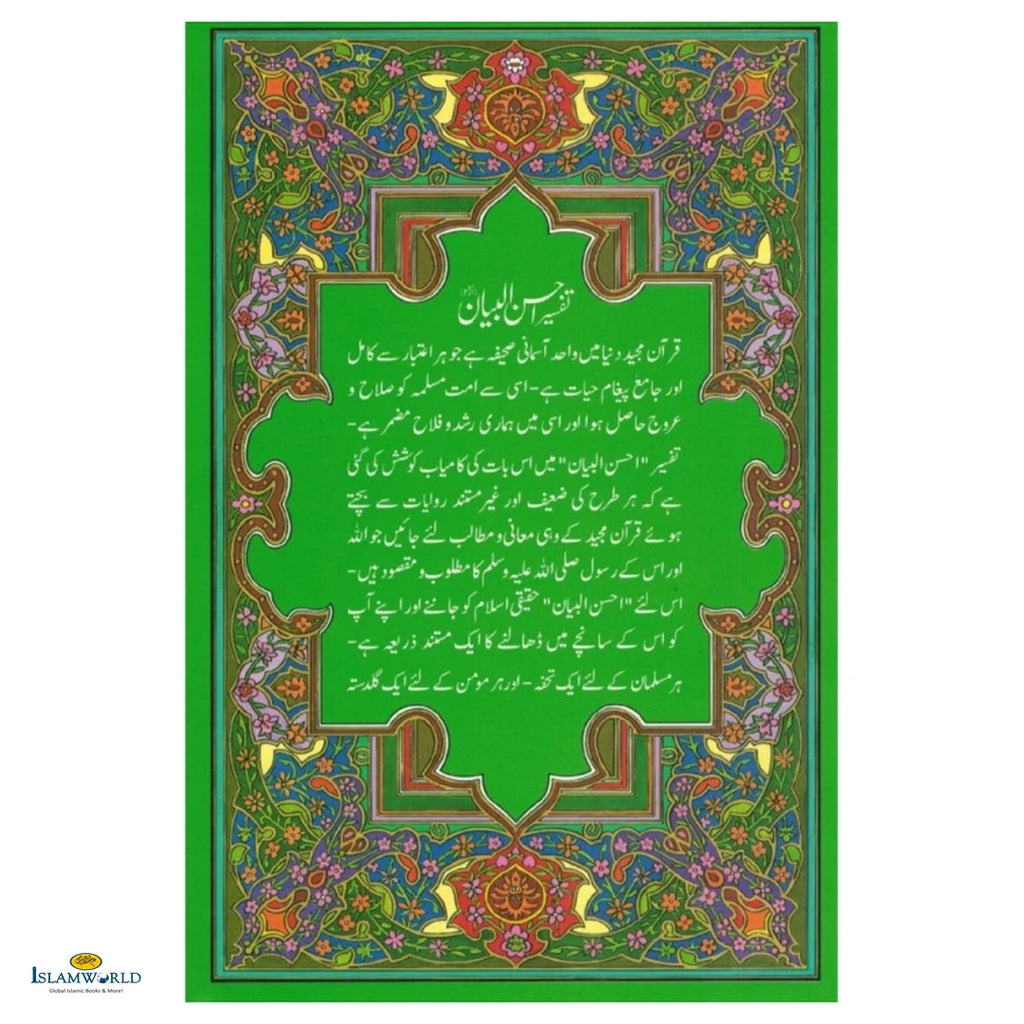 تفسیر احسن البیان (اردو)
قرآن مجید دنیا میں واحد آسمانی صحیفہ ہے جو ہر اعتبار سے کامل
اور جامع پیغام حیات ہے - اسی سے امت مسلمہ کو صلاح و
عروج حاصل ہوا اور اسی میں ہماری رشد و فلاح مضمر ہے -
تفسیر "احسن البیان" میں اس بات کی کامیاب کوشش کی گئی
ہے کہ ہر طرح کی ضعیف اور غیر مستند روایات سے بچتے
ہوئے قرآن مجید کے وہی معانی و مطالب لئے جائیں جو اللہ
اور اس کے رسول صلی اللہ علیہ وسلم کا مطلوب و مقصود ہیں -
اس لئے "احسن البیان" حقیقی اسلام کو جاننے اور اپنے آپ
کو اس کے سانچے میں ڈھالنے کا ایک مستند ذریعہ ہے -
ہر مسلمان کے لئے ایک تحفہ - اور ہر مومن کے لئے ایک گلدستہ
ISLAMWORLD
Global Islamic Books & More!